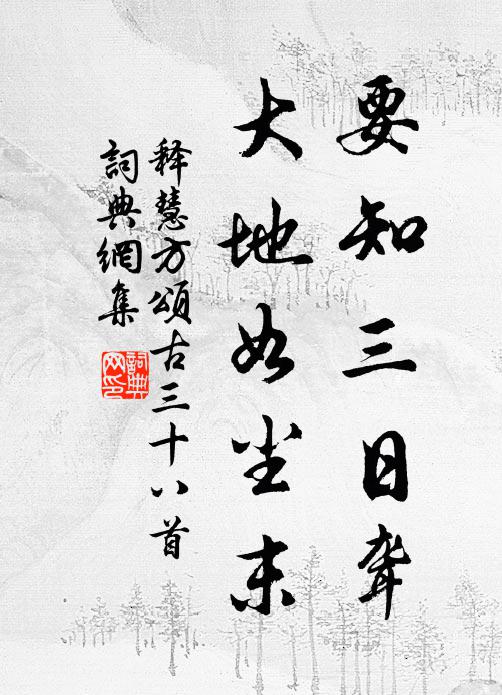 要知三日聋
大地如尘末
释慧方頌古三十八首
詞典網集
詞典网印